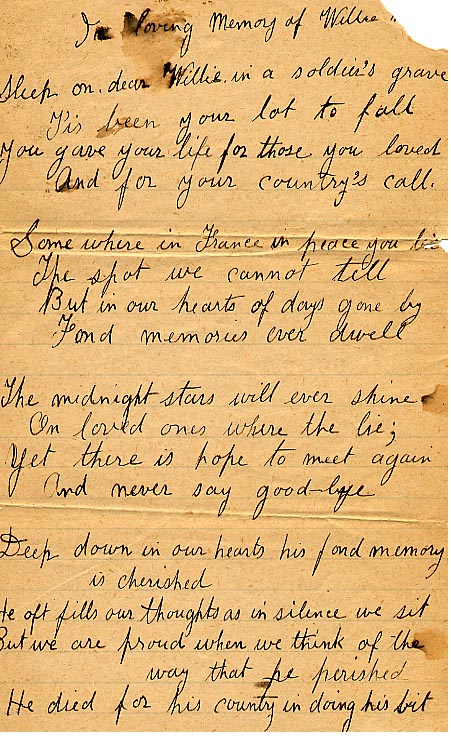 In loving Memory of Willie"
Sleep on. dear Willie. in a soldier's grave
T'is been your lot to fall
You gave your life for those you loved
And for your country's call.
Some where in France in peace you lie
The spot we cannot tell
But in our hearts of days gone by
Fond memories ever dwell
The midnight stars will ever shine
On loved ones where the lie;
Yet there is hope to meet again
And never say good-bye
Deep down in our hearts his fond memory
is cherished
He oft fills our thoughts as in silence we sit
But we are proud when we think of the
way that he perished
He died for his country in doing his bit